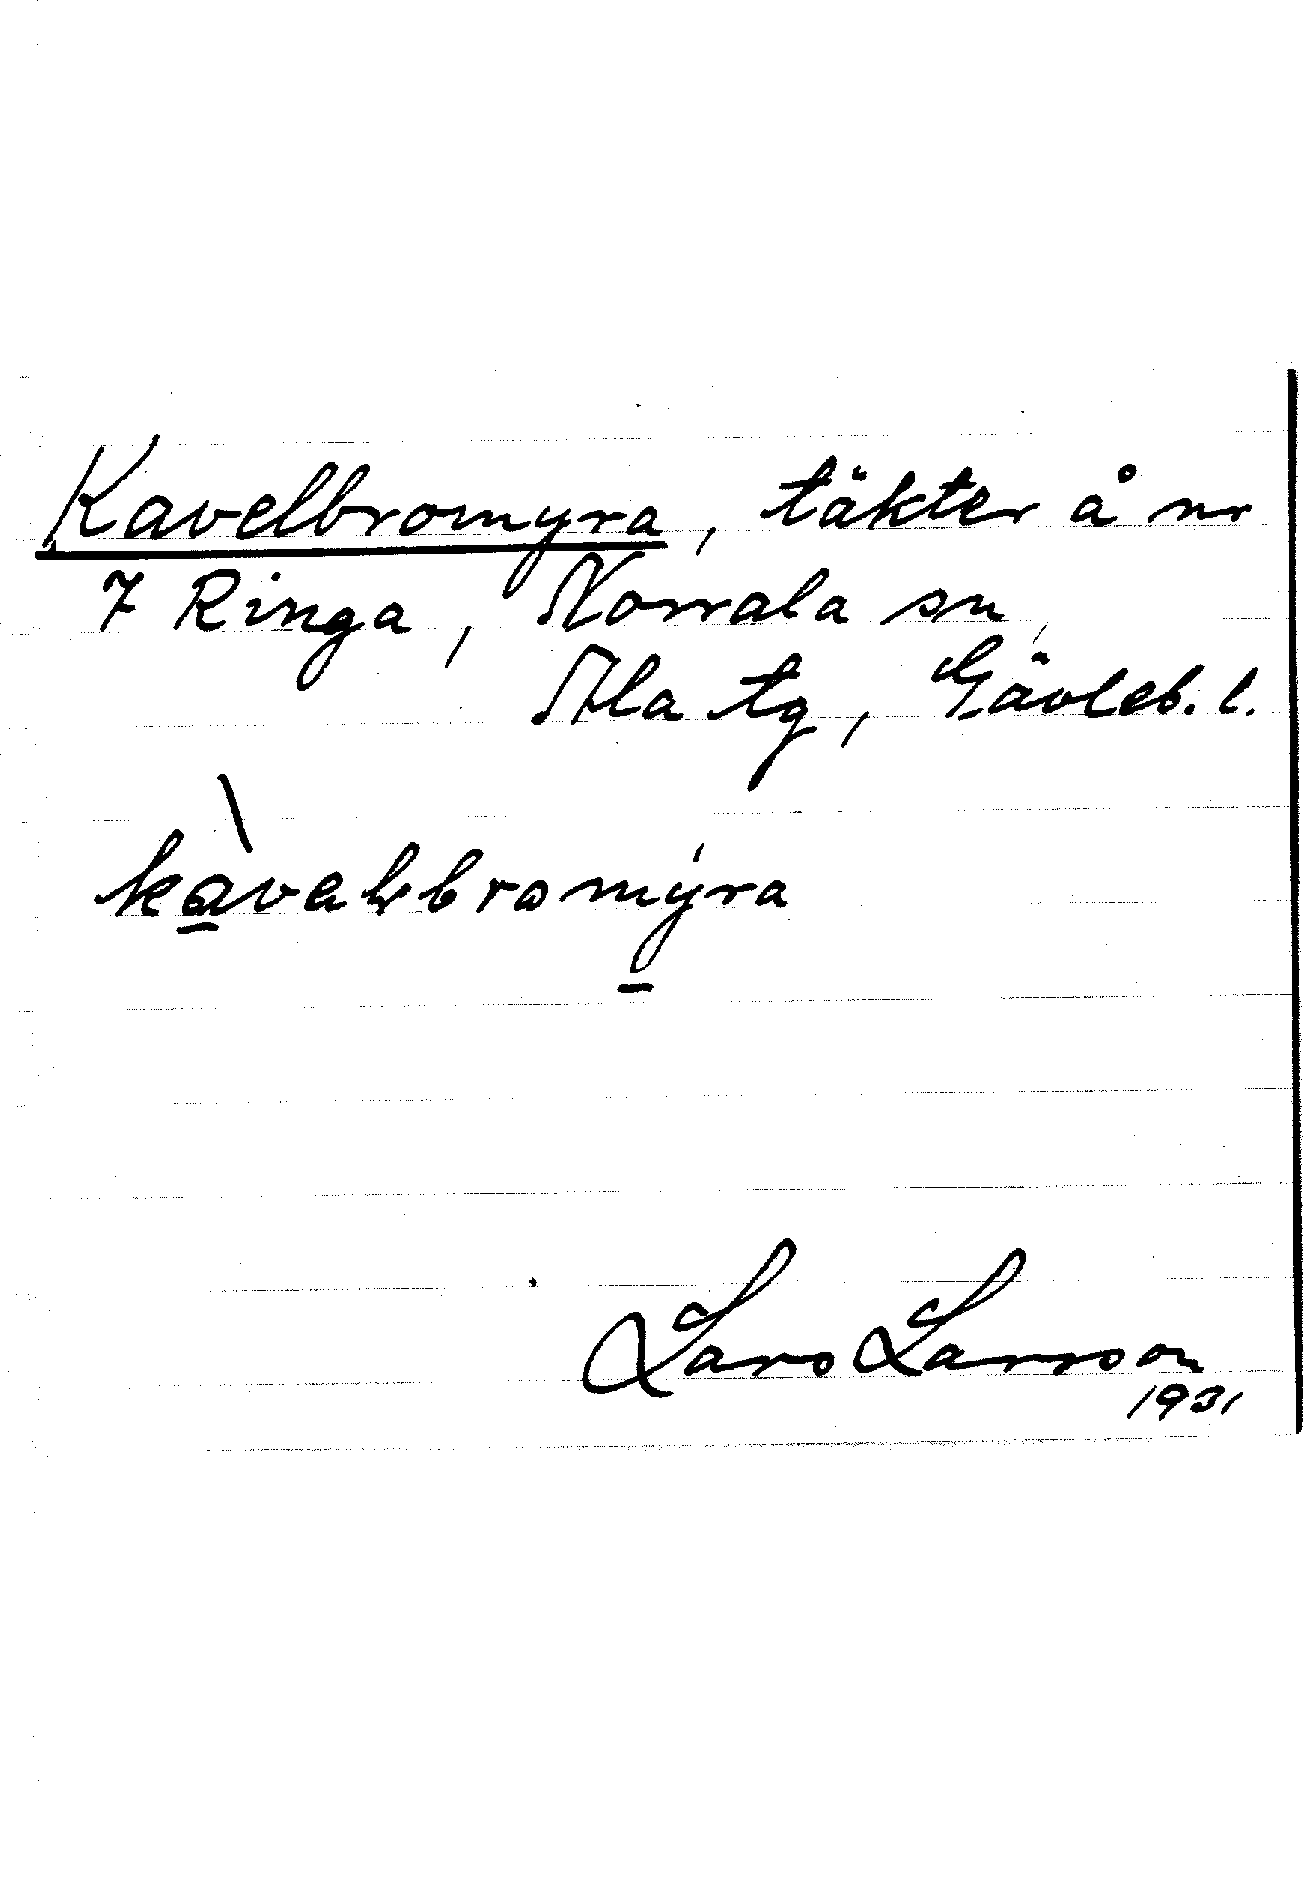 Kavelbromyra, täkter å nr
7 Ringa, Norrala sn,
Ala tg, Gävleb. l.
kàvalbromýra
Lars Larsson
1931